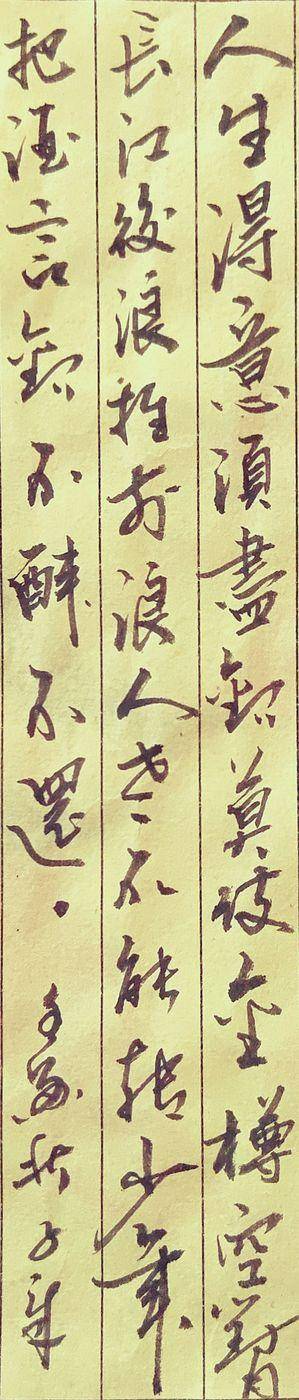 人生得意須盡歡莫使金樽空對月
長江後浪推前浪人老不能轉少年
把酒言歡不醉不還。